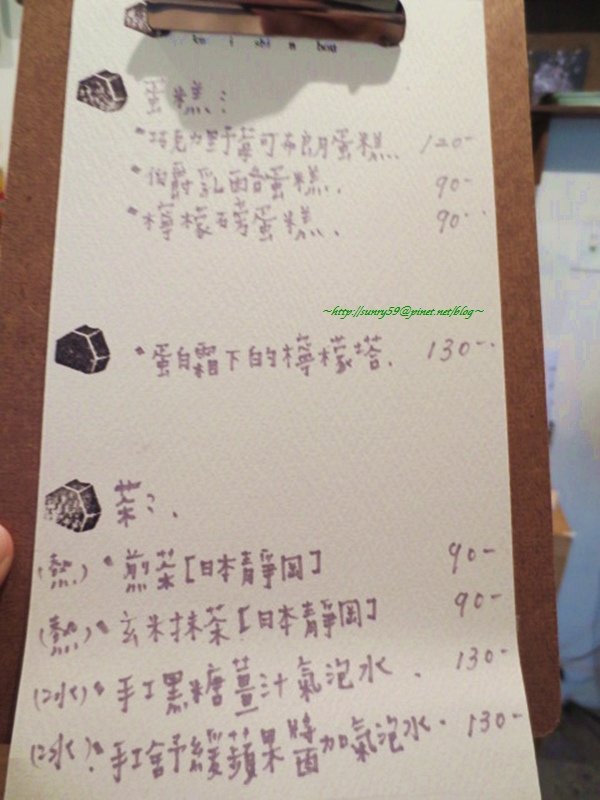 ko i shi n bou
蛋糕：
巧克力野莓可布朗蛋糕、 120-
伯爵乳酪蛋糕、 90-
檸檬磅蛋糕、 90-
~http://sunry59@pixnet.net/blog~
蛋白霜下的檸檬塔、 130-
茶：、
(熱) 煎茶[日本靜岡] 90-
(熱) 玄米抹茶[日本靜岡] 90-
(冰) 手工黑糖薑汁氣泡水 、 130-
(冰) 手工舒緩蘋果醬加氣泡水、 130-